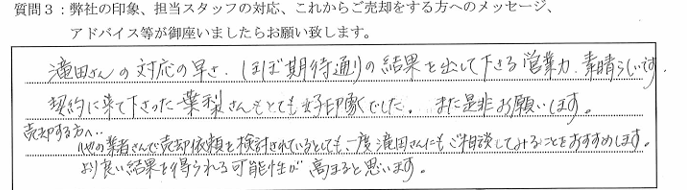 質問3：弊社の印象、担当スタッフの対応、これからご売却をする方へのメッセージ、
アドバイス等が御座いましたらお願い致します。
滝田さんの対応の早さ、ほぼ期待通りの結果を出して下さる営業力、素晴らしいです。
契約に来て下さった葉梨さんもとても好印象でした。また是非お願いします。
売却する方へ…
他の業者さんで売却依頼を検討されているとしても、一度滝田さんにもご相談してみることをおすすめします。
より良い結果を得られる可能性が高まると思います。